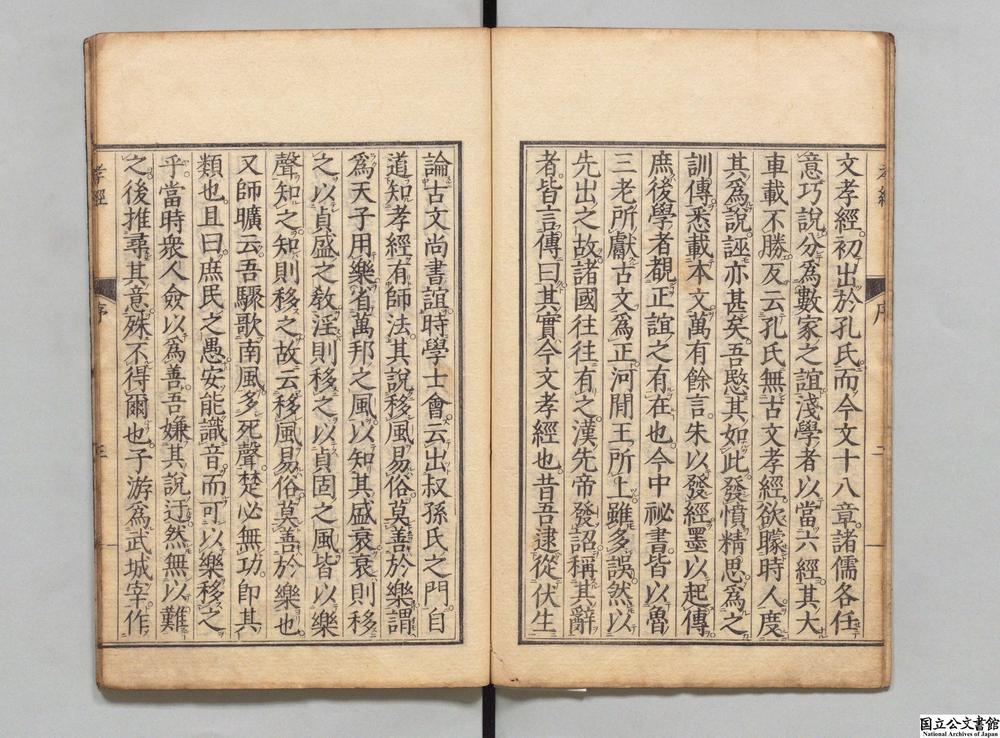 文孝經初出於孔氏而今文十八章諸儒各任
意巧說分爲數家之誼淺學者以當六經其大
車載不勝反云孔氏無古文孝經欲矇時人度
其爲說誣亦甚矣吾愍其如此發憤精思爲之
訓傳悉載本文萬有餘言朱以發經墨以起傳
庶後學者覩正誼之有在也今中祕書皆以魯
三老所獻古文爲正河間王所上雖多誤然以
先出之故諸國往往有之漢先帝發詔稱其辭
者皆言傳曰其實今文孝經也昔吾逮從伏生
孝經
序
二
論古文尚書誼時學士會云出叔孫氏之門自
道知孝經有師法其說移風易俗莫善於樂謂
爲天子用樂省萬邦之風以知其盛衰衰則移
之以貞盛之敎淫則移之以貞固之風皆以樂
聲知之知則移之故云移風易俗莫善於樂也
又師曠云吾驟歌南風多死聲楚必無功卽其
類也且曰庶民之愚安能識音而可以樂移之
乎當時衆人僉以爲善吾嫌其說迂然無以難
之後推尋其意殊不得爾也子游爲武城宰作
孝經
序
国立公文書館
National Archives of Japan